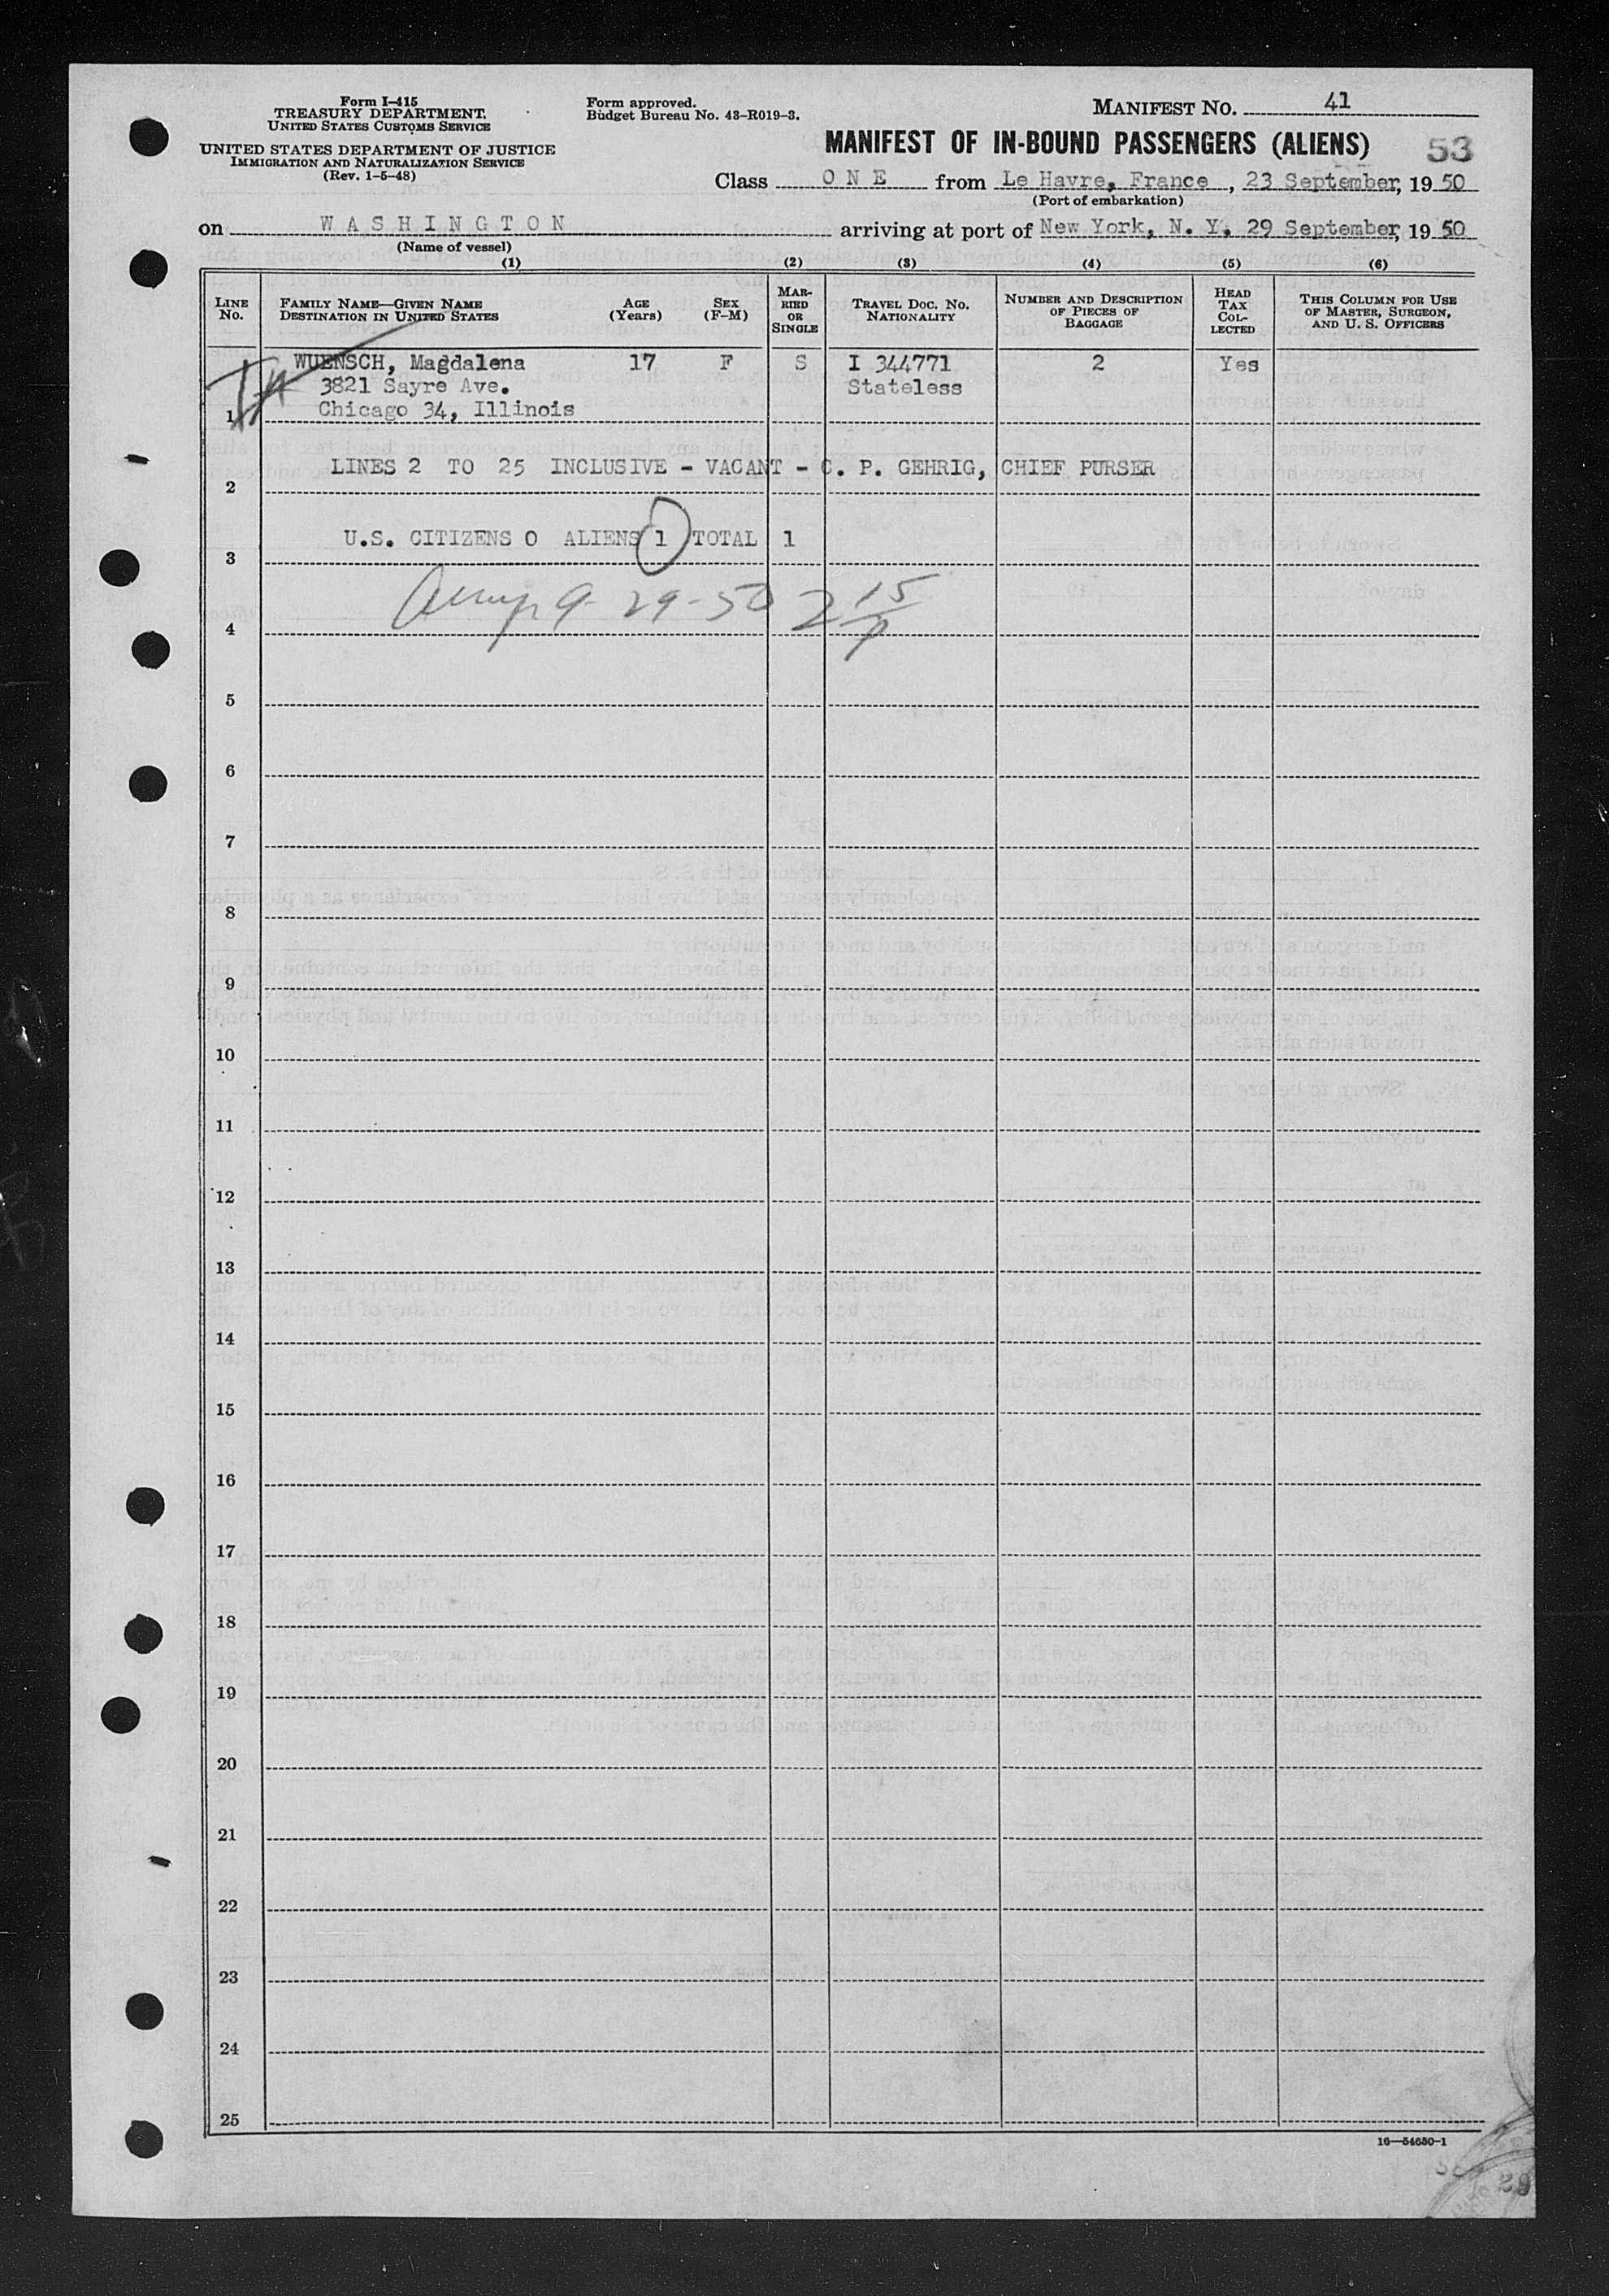 Form I-415
TREASURY DEPARTMENT.
UNITED STATES CUSTOMS SERVICE
UNITED STATES DEPARTMENT OF JUSTICE
IMMIGRATION AND NATURALIZATION SERVICE
(Rev. 1-5-48)
Form approved.
Budget Bureau No. 43-R019-3.
MANIFEST NO. 41
MANIFEST OF IN-BOUND PASSENGERS (ALIENS) 53
Class ONE from Le Havre, France, 23 September, 1950
(Port of embarkation)
on WASHINGTON arriving at port of New York, N. Y. 29 September, 1950
(Name of vessel)
(1) (2) (3) (4) (5) (6)
LINE No. FAMILY NAME—GIVEN NAME DESTINATION IN UNITED STATES AGE (Years) SEX (F-M) MARRIED OR SINGLE TRAVEL DOC. NO. NATIONALITY NUMBER AND DESCRIPTION OF PIECES OF BAGGAGE HEAD TAX COLLECTED THIS COLUMN FOR USE OF MASTER, SURGEON, AND U. S. OFFICERS
WUENSCH, Magdalena 17 F S I 344771 2 Yes
3821 Sayre Ave. Stateless
1 Chicago 34, Illinois
LINES 2 TO 25 INCLUSIVE - VACANT - C. P. GEHRIG, CHIEF PURSER
2
U.S. CITIZENS 0 ALIENS 1 TOTAL 1
3
9-29-50 2 15/P
4
5
6
7
8
9
10
11
12
13
14
15
16
17
18
19
20
21
22
23
24
25
16—54650-1
29